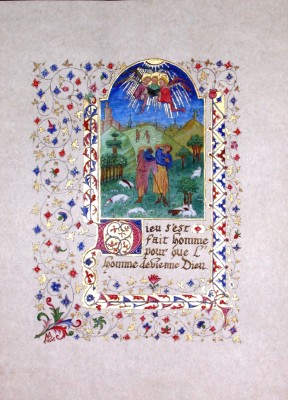 Dieu s'est
fait homme
pour que L'
homme devienne Dieu